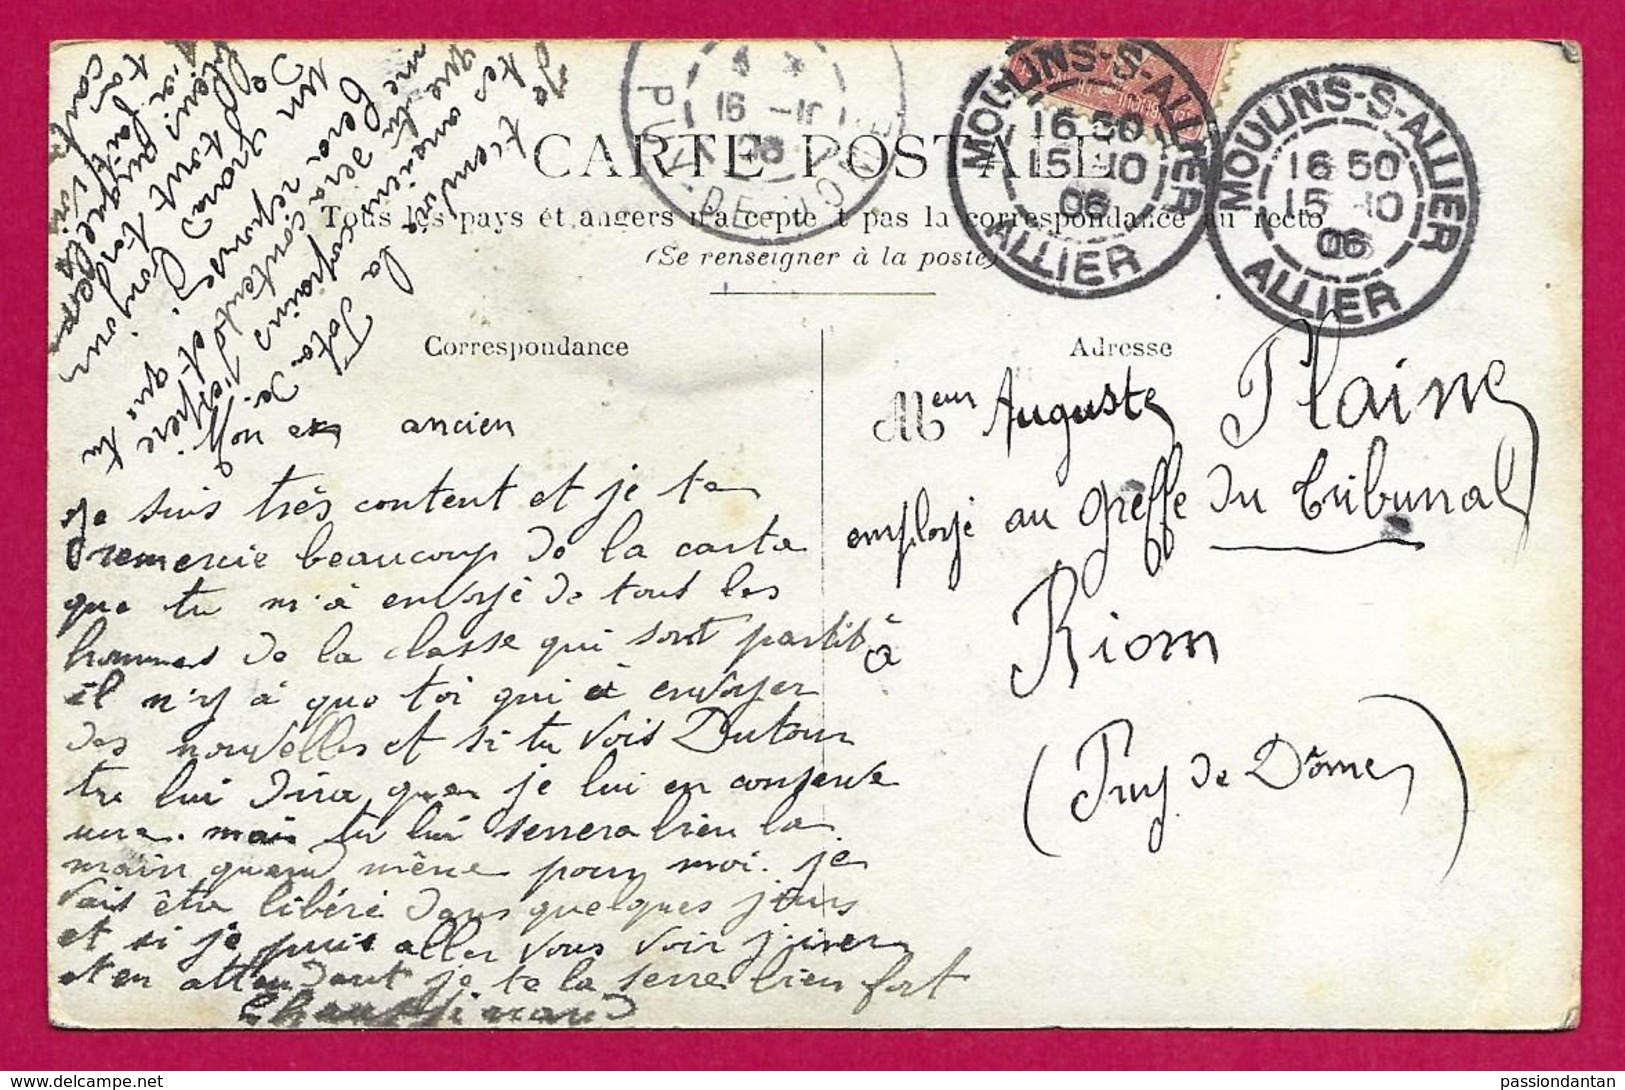 CARTE POSTALE
Tous les pays étrangers n'acceptent pas la correspondance au recto
(Se renseigner à la poste)
MOULINS-S-ALLIER
16 50
15-10
06
ALLIER
MOULINS-S-ALLIER
16 50
15-10
06
ALLIER
16-10
06
PUY-DE-DOME
Correspondance
Adresse
Meur Auguste Plaine
employé au Greffe du tribunal
à Riom
(Puy de Dôme)
Mon ex ancien
Je suis très content et je te
remercie beaucoup de la carte
que tu m'à envoyé de tous les
hommes de la classe qui sont partit
il n'y à que toi qui à envoyer
des nouvelles et si tu vois Dutour
tu lui dira que je lui en conserve
une. mais tu lui serrera bien la
main quand même pour moi. je
vais être libéré dans quelques jours
et si je puis aller vous voir j'irer
et en attendant je te la serre bien fort
Je t'envoi la Tota de
tes anciens copains
que tu sera content et
un grand bonjour
passiondantan